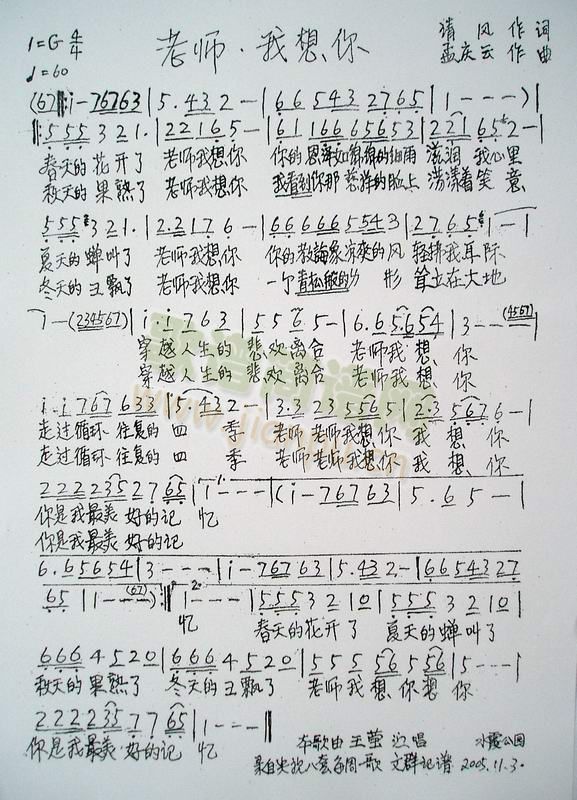 1=G 4/4
♩=60
老师·我想你
清风作词
孟庆云作曲
(67‖: i-76763 | 5.432- | 66543 2765 | 1---) |
‖: 555321. | 22165- | 61166656 53 | 221652- |
春天的花开了 老师我想你 你的恩泽如绵绵的细雨 滋润我心里
秋天的果熟了 老师我想你 我看到你那慈祥的脸上 荡漾着笑意
555321. | 2.2176- | 666666 5543 | 2765 1- |
夏天的蝉叫了 老师我想你 你的教诲象凉爽的风 轻拂我耳际
冬天的雪飘了 老师我想你 一个青松般的 形 耸立在大地
1--(234567) | i.i763 | 5565- | 6.65654 | 3--(4567) |
穿越人生的悲欢离合 老师我想你
穿越人生的悲欢离合 老师我想你
i.i767633 | 5.432- | 3.3235565 | 2.35676- |
走过循环往复的四季 老师老师我想你我想你
走过循环往复的四季 老师老师我想你我想你
22223527 65 | 1--- | (i-76763 | 5.65- |
你是我最美好的记忆
你是我最美好的记
6.65654 | 3--- | i-76763 | 5.432- | 66543 27
65 | 1--(67) :‖ i--- | 5553210 | 5553210 |
忆 春天的花开了 夏天的蝉叫了
6664520 | 6664520 | 555 56 556 | 5--- |
秋天的果熟了 冬天的雪飘了 老师我想你想你
22223577 65 | 1---‖
你是我最美好的记忆
本歌曲 王莹 演唱 水霞公园
录自央视八套每周一歌 文群记谱 2005.11.3.